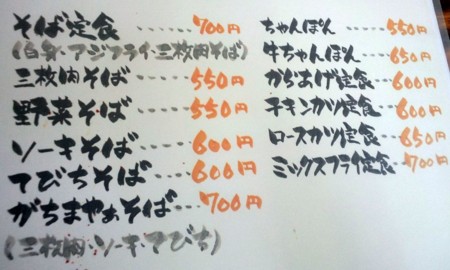 そば定食……700円
(白身・アジフライ・三枚肉そば)
三枚肉そば……550円
野菜そば……550円
ソーキそば……600円
てびちそば……600円
がちまやぁそば……700円
(三枚肉・ソーキ・てびち)
ちゃんぽん……550円
牛ちゃんぽん……650円
からあげ定食……600円
チキンカツ定食……600円
ロースカツ定食……650円
ミックスフライ定食……700円